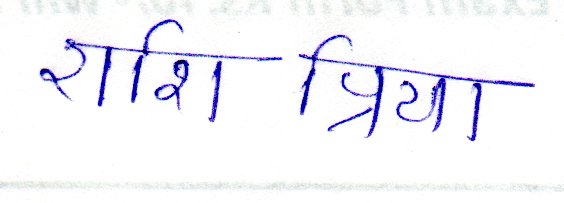 राशि प्रिया